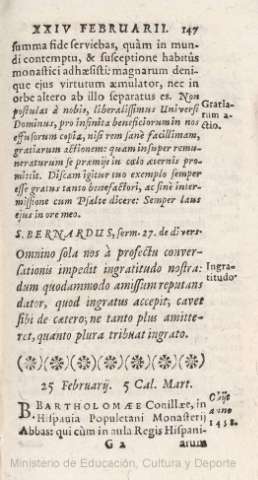 XXIV FEBRUARII. 147
summa fide serviebas, quàm in mun-
di contemptu, & susceptione habitûs
monastici adhæsisti: magnarum deni-
que ejus virtutum æmulator, nec in
orbe altero ab illo separatus es. Non
postulas à nobis, liberalissimus Universi
Dominus, pro infinita beneficiorum in nos
effusorum copia, nisi rem sanè facillimam,
gratiarum actionem: quam insuper remu-
neraturum se præmijs in cælo æternis pro-
mittis. Discam igitur tuo exemplo semper
esse gratus tanto benefactori, ac sinè inter-
missione cum Psalte dicere: Semper laus
ejus in ore meo.
Gratia-
rum a-
ctio.
S. BERNARDUS, serm. 27. de divers.
Omnino sola nos à profectu conver-
sationis impedit ingratitudo nostra:
dum quodammodo amissum reputans
dator, quod ingratus accipit, cavet
sibi de cætero; ne tanto plus amitte-
ret, quanto plura tribuat ingrato.
Ingra-
titudo
25 Februarij. 5 Cal. Mart.
B. BARTHOLOMÆE Conillæe, in
Hispania Populetani Monasterij
Abbas: qui cùm in aula Regis Hispani-
anno
1458.
G 2 arum
Ministerio de Educación, Cultura y Deporte